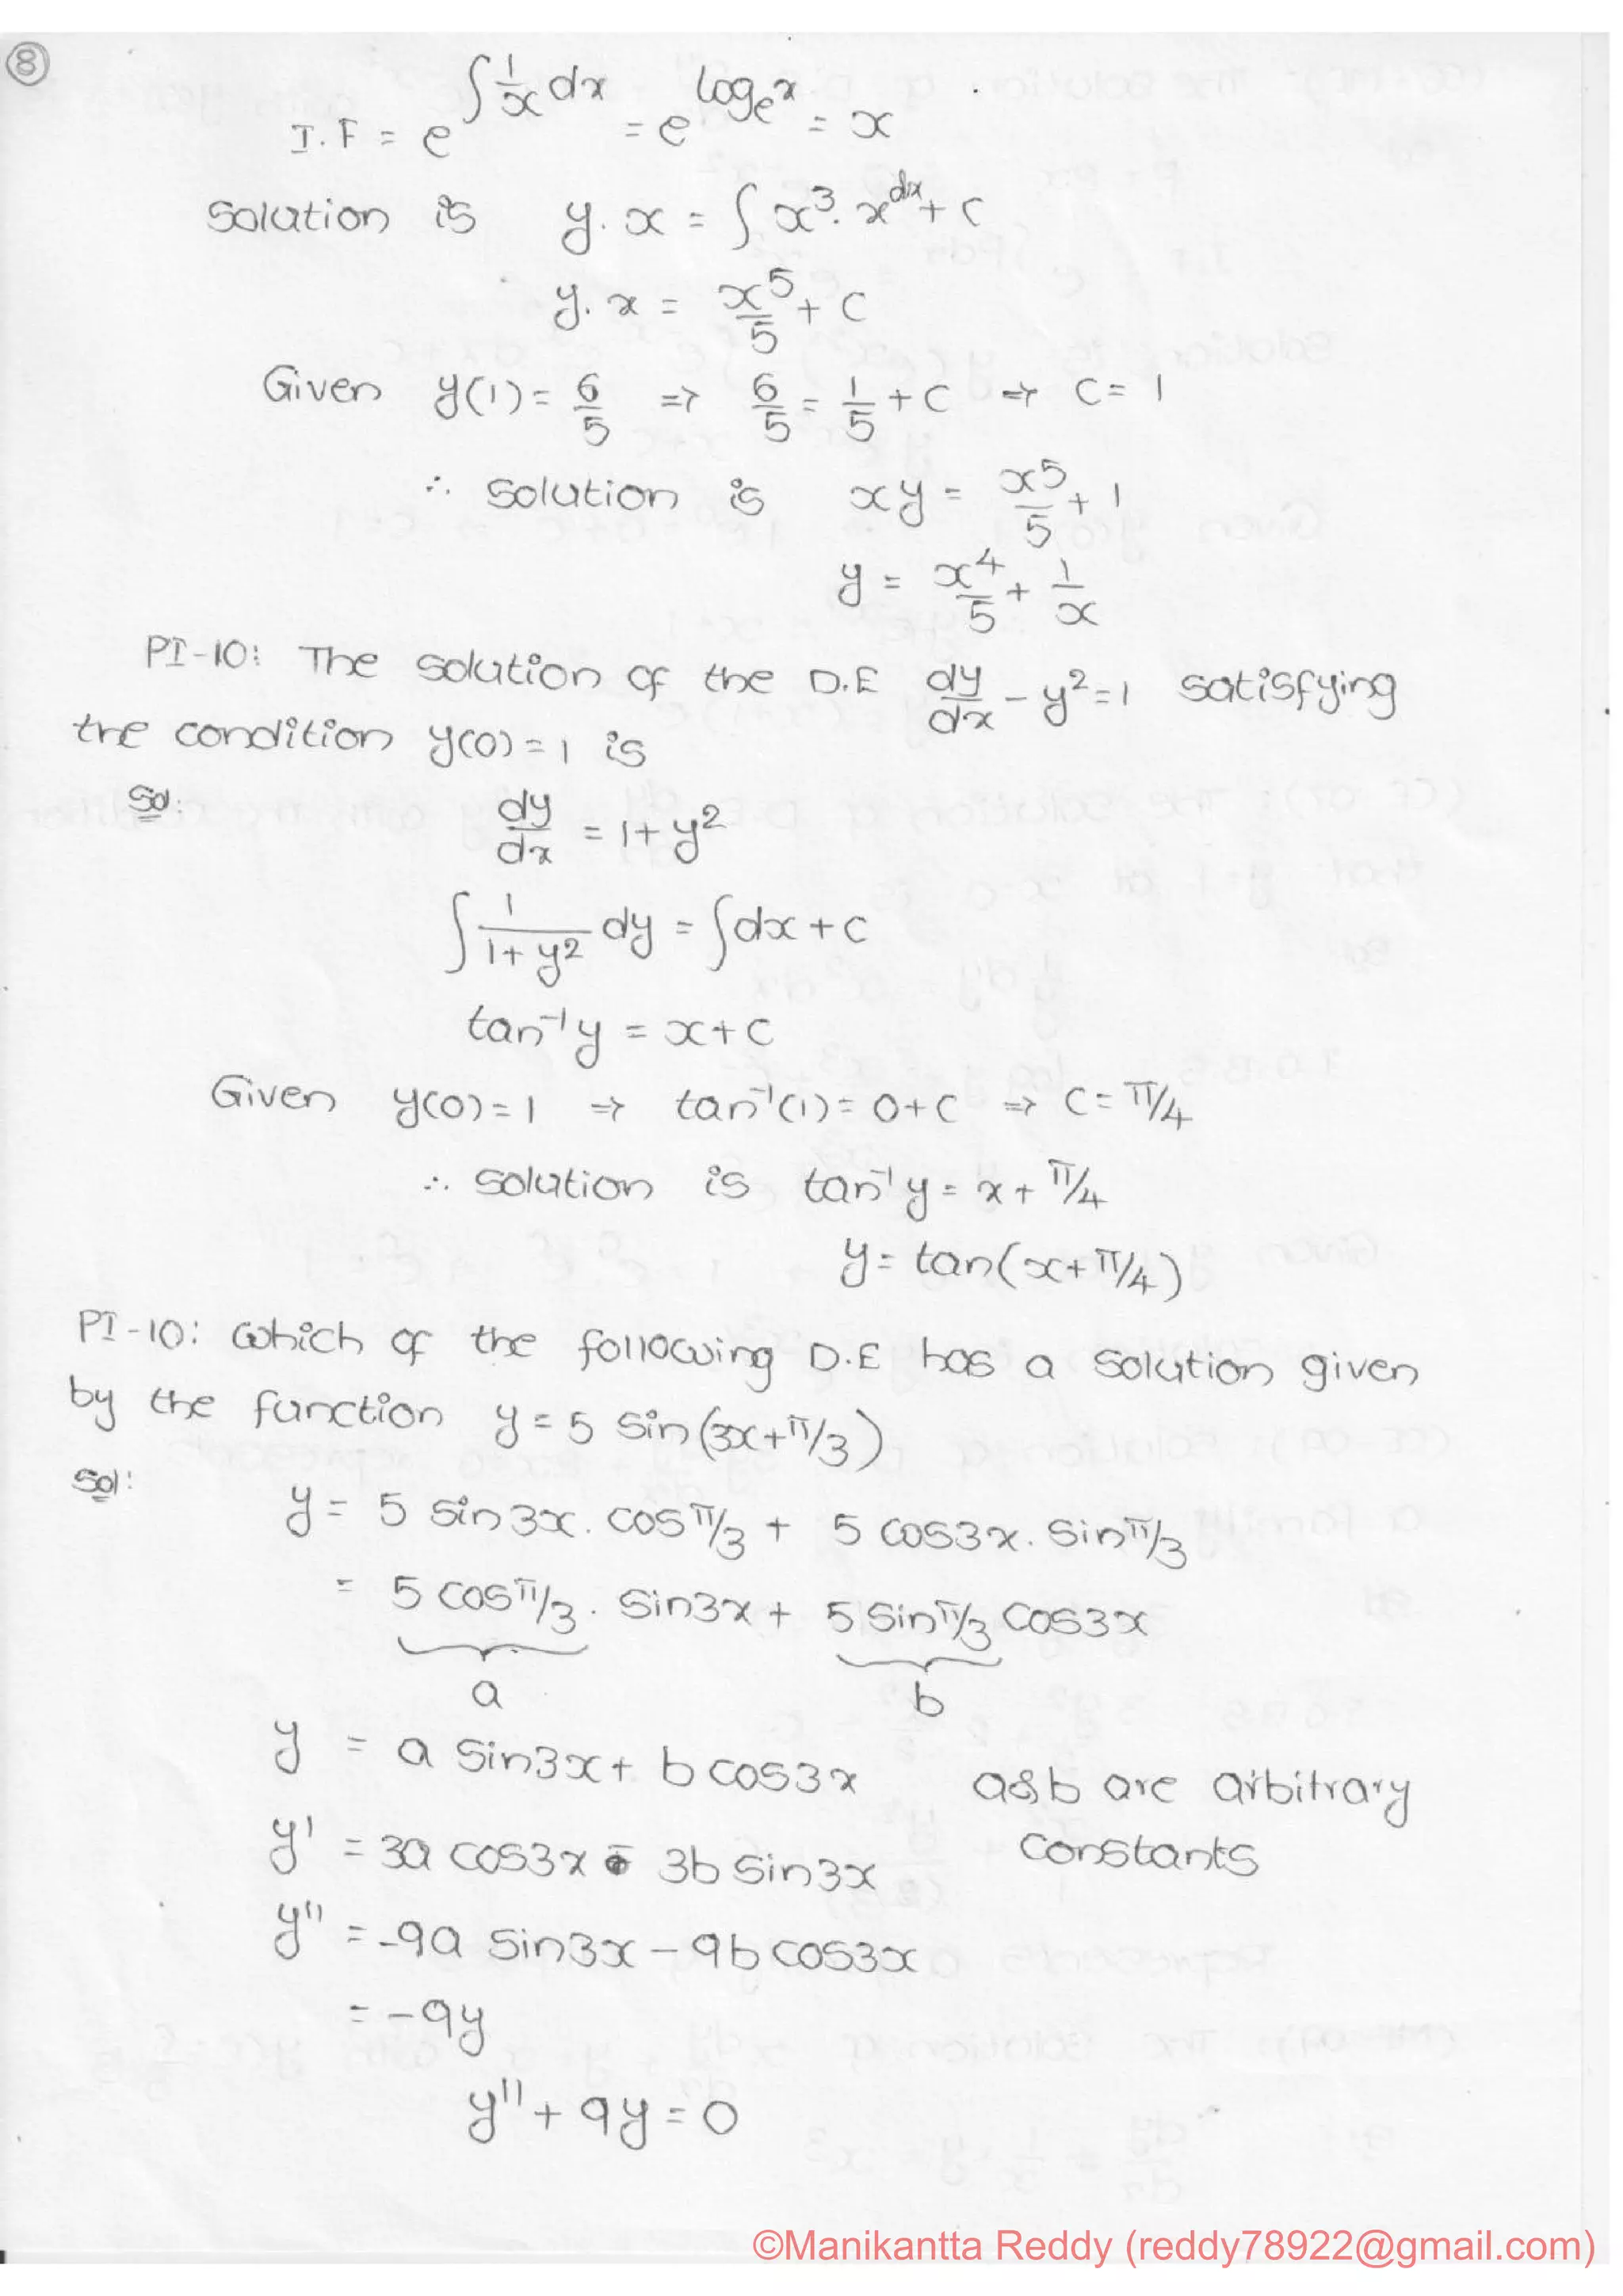 8
I.F = e^{∫ 1/x dx} = e^{log_e x} = x
Solution is y.x = ∫ x³. x dx + c
y.x = x⁵/5 + c
Given y(1) = 6/5 => 6/5 = 1/5 + c => c = 1
∴ solution is xy = x⁵/5 + 1
y = x⁴/5 + 1/x
PI-10: The solution of the D.E dy/dx - y² = 1 satisfying
the condition y(0) = 1 is
Sol:
dy/dx = 1 + y²
∫ 1/(1+y²) dy = ∫ dx + c
tan⁻¹y = x + c
Given y(0) = 1 => tan⁻¹(1) = 0 + c => c = π/4
∴ solution is tan⁻¹y = x + π/4
y = tan(x + π/4)
PI-10: Which of the following D.E has a solution given
by the function y = 5 sin(3x + π/3)
Sol:
y = 5 sin3x. cos π/3 + 5 cos3x. sin π/3
= 5 cos π/3 . sin3x + 5 sin π/3 cos3x
a b
y = a sin3x + b cos3x a & b are arbitrary
constants
y' = 3a cos3x - 3b sin3x
y'' = -9a sin3x - 9b cos3x
= -9y
y'' + 9y = 0
©Manikantta Reddy (reddy78922@gmail.com)